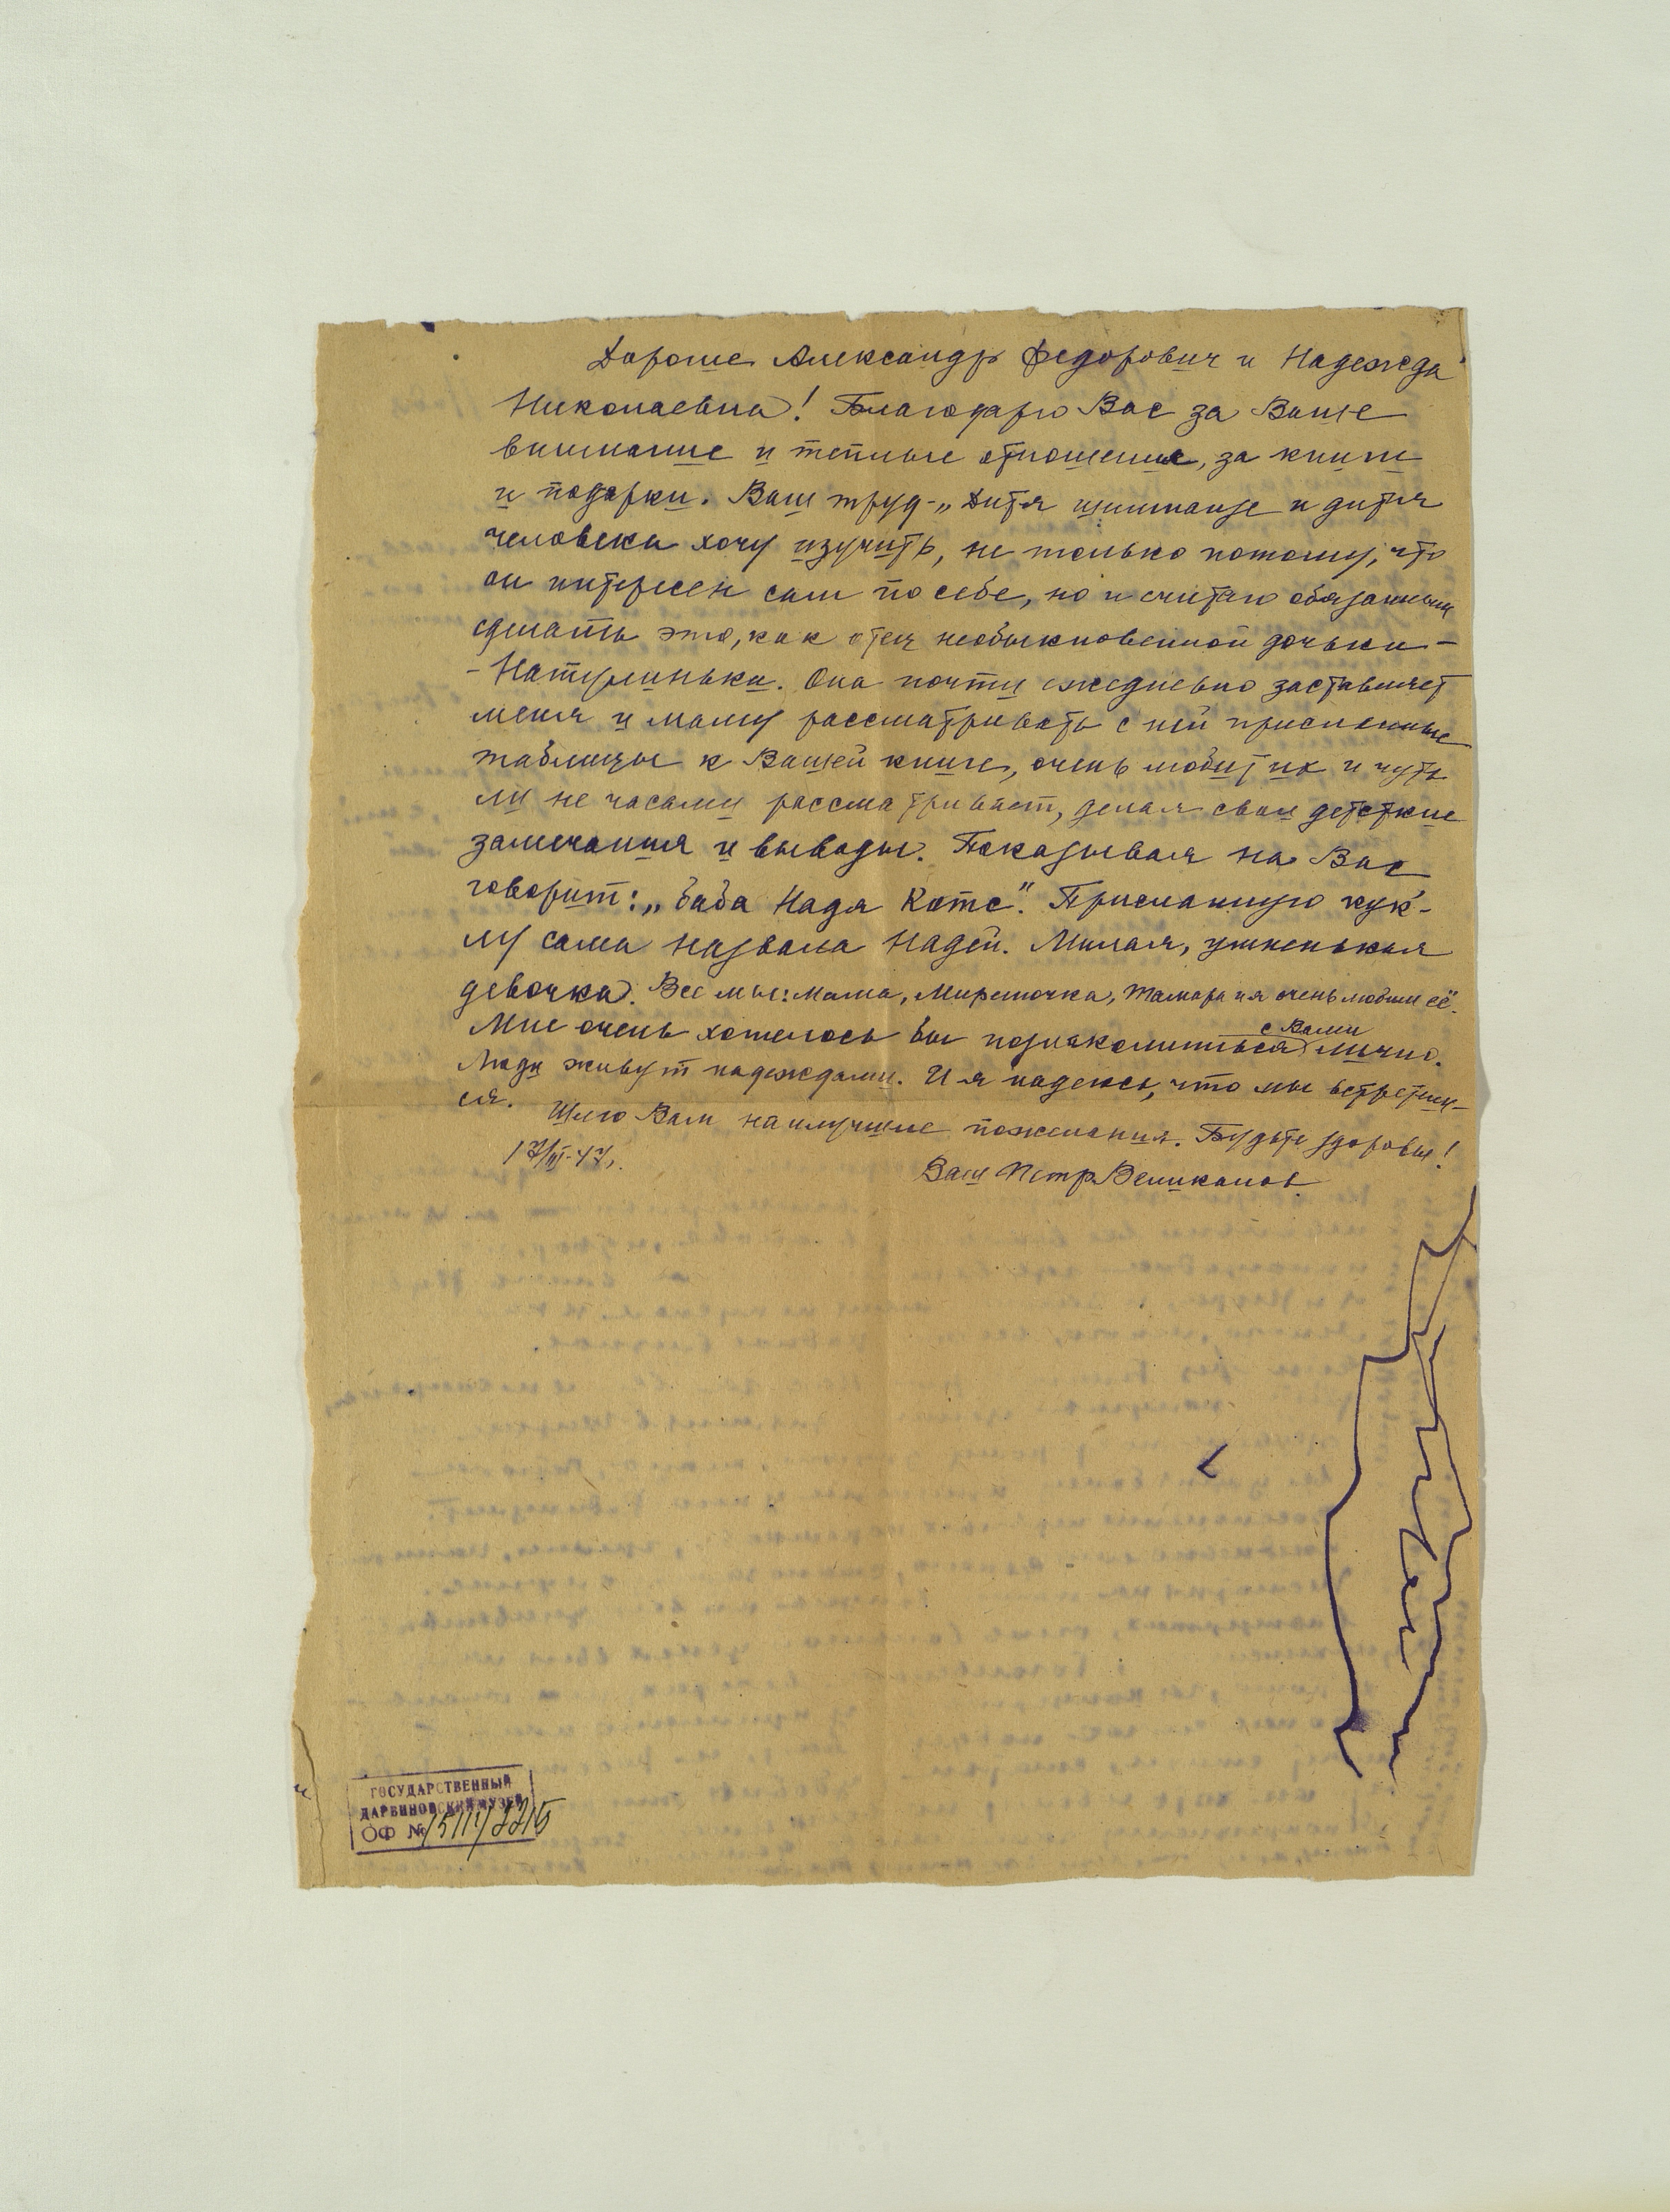 Дорогие Александр Федорович и Надежда
Николаевна! Благодарю Вас за Ваше
внимание и теплые отношения, за книги
и подарки. Ваш труд - „Дитя шимпанзе и дитя
человека хочу изучить, не только потому, что
он интересен сам по себе, но и считаю обязанным
сделать это, как отец необыкновенной дочьки -
- Натулиньки. Она почти ежедневно заставляет
меня и маму рассматривать с ней присланные
таблицы к Вашей книге, очень любит их и чуть
ли не часами рассматривает, делая свои детские
замечания и выводы. Показывая на Вас
говорит: „баба Надя Котс". Присланную кук-
лу сама назвала Надей. Милая, умненькая
девочка. Все мы: мама, Мирочка, Тамара и я очень любим её.
Мне очень хотелось бы познакомиться с Вами лично.
Люди живут надеждами. И я надеюсь, что мы встретим-
ся.
Шлю Вам наилучшие пожелания. Будьте здоровы!
17/III-47.
Ваш Петр Великанов
ГОСУДАРСТВЕННЫЙ
ДАРВИНОВСКИЙ МУЗЕЙ
ОФ № 15111/2215